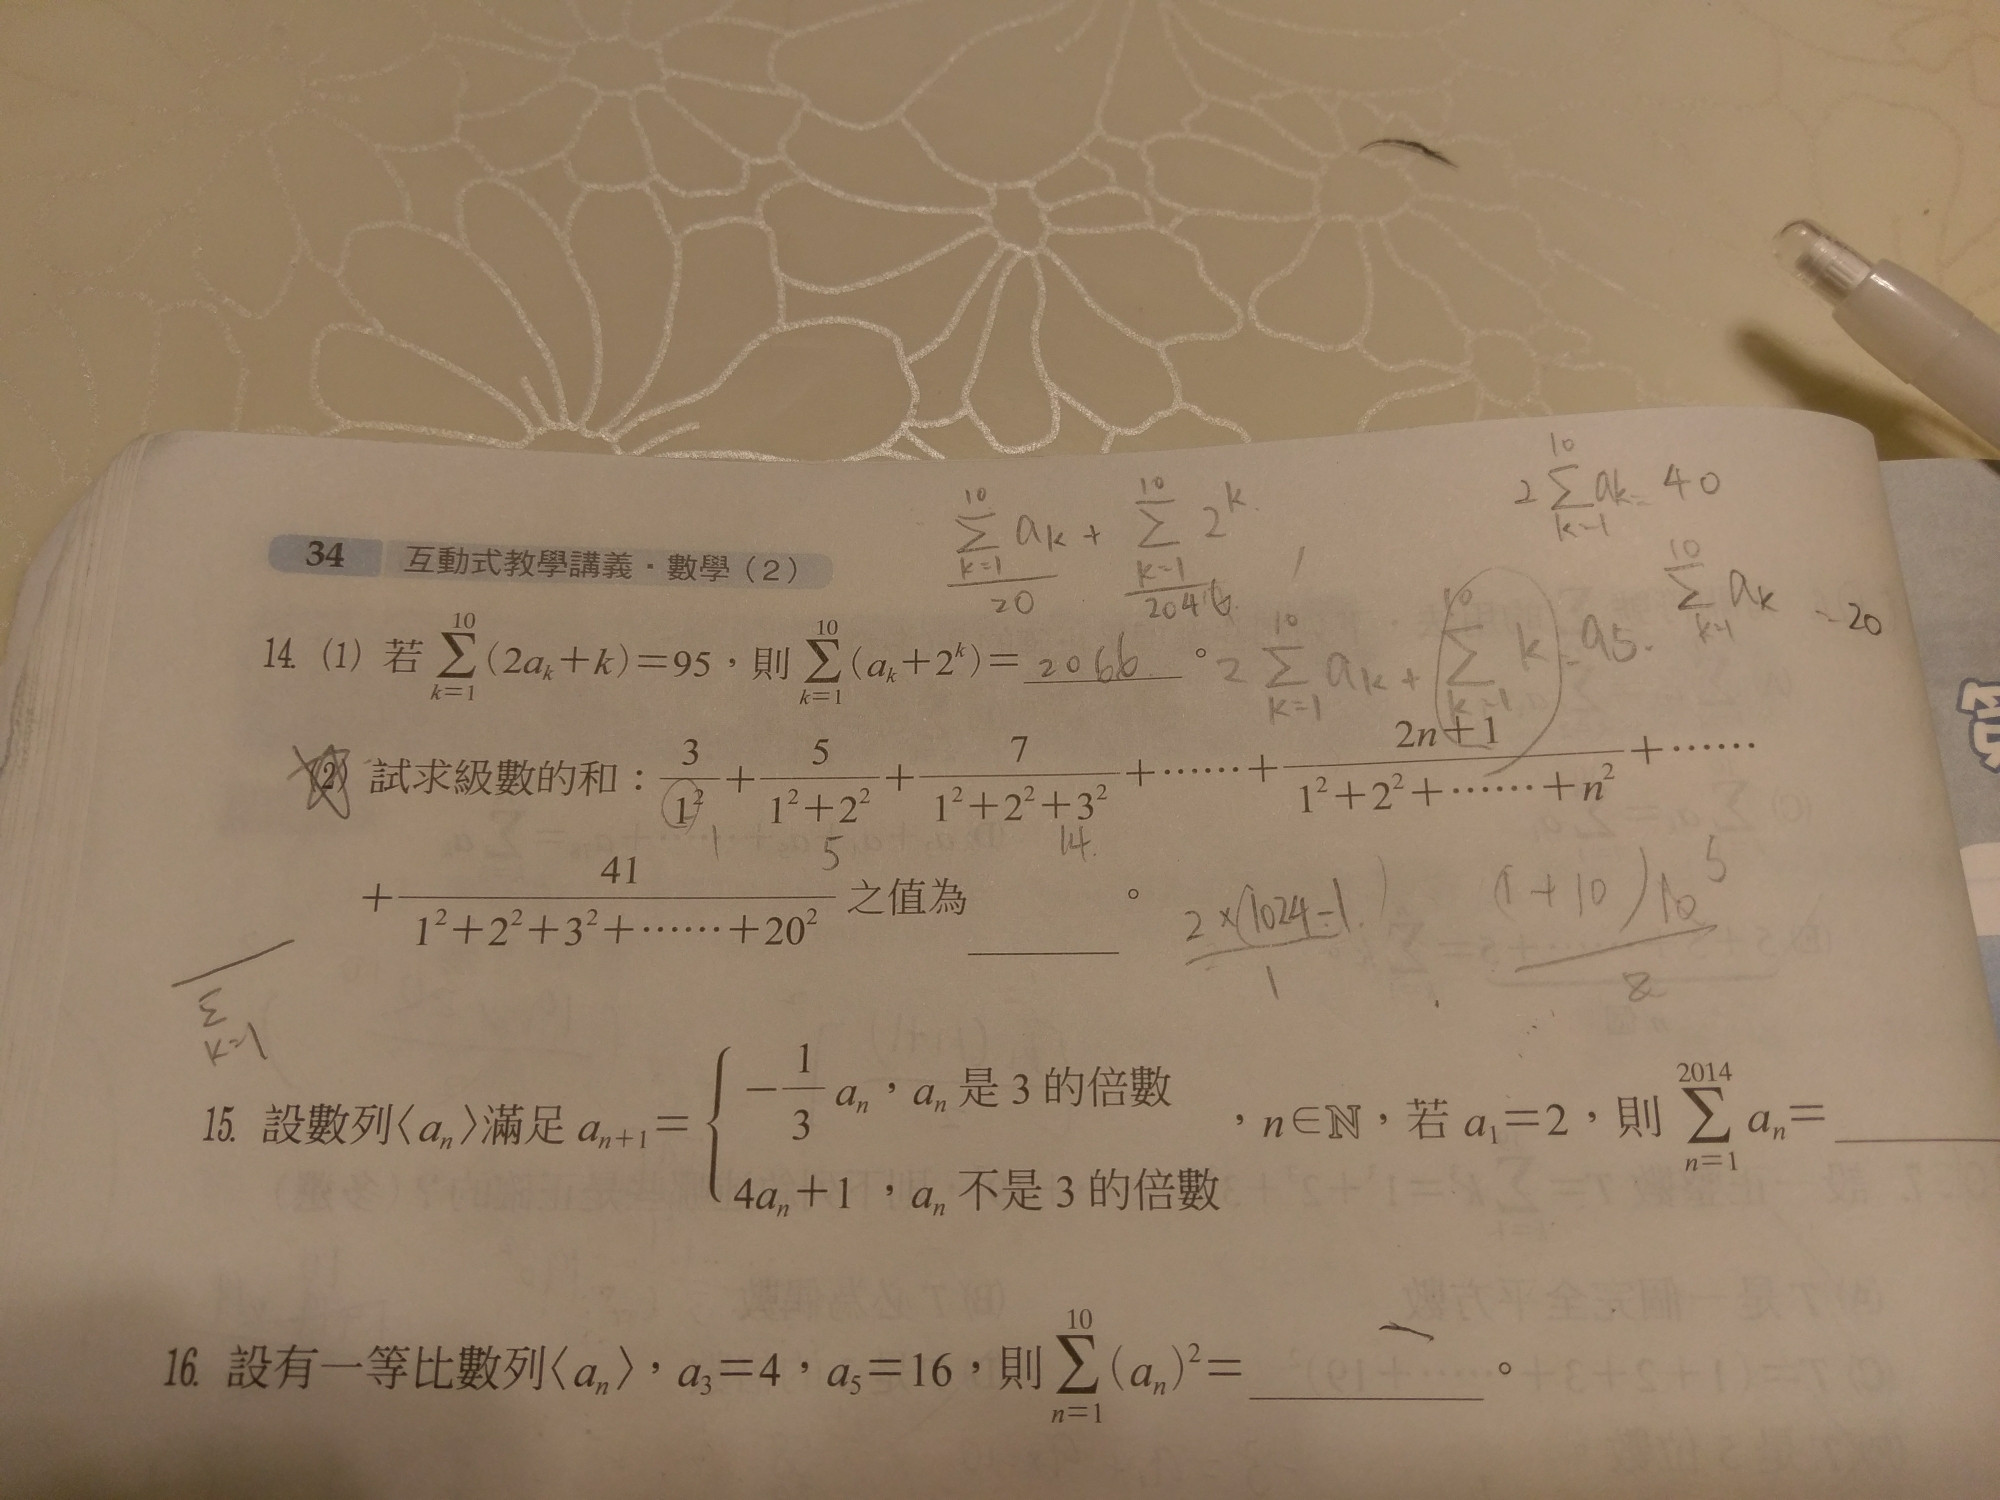 34 互動式教學講義・數學（2）
\sum_{k=1}^{10} a_k + \sum_{k=1}^{10} 2^k
20 2046
2\sum_{k=1}^{10} a_k = 40
\sum_{k=1}^{10} a_k = 20
14. (1) 若 \sum_{k=1}^{10}(2a_k+k)=95，則 \sum_{k=1}^{10}(a_k+2^k)= 2066 。
2\sum_{k=1}^{10} a_k + \sum_{k=1}^{10} k = 95.
(2) 試求級數的和：\frac{3}{1^2}+\frac{5}{1^2+2^2}+\frac{7}{1^2+2^2+3^2}+……+\frac{2n+1}{1^2+2^2+……+n^2}+……
1 5 14.
+\frac{41}{1^2+2^2+3^2+……+20^2} 之值為 ______ 。
\frac{2×(1024-1)}{1} \frac{(1+10)10}{2} 5
\sum_{k=1}
15. 設數列〈a_n〉滿足 a_{n+1}= { -\frac{1}{3}a_n，a_n 是 3 的倍數
4a_n+1，a_n 不是 3 的倍數 ，n∈ℕ，若 a_1=2，則 \sum_{n=1}^{2014} a_n= ______
16. 設有一等比數列〈a_n〉，a_3=4，a_5=16，則 \sum_{n=1}^{10}(a_n)^2= ______ 。